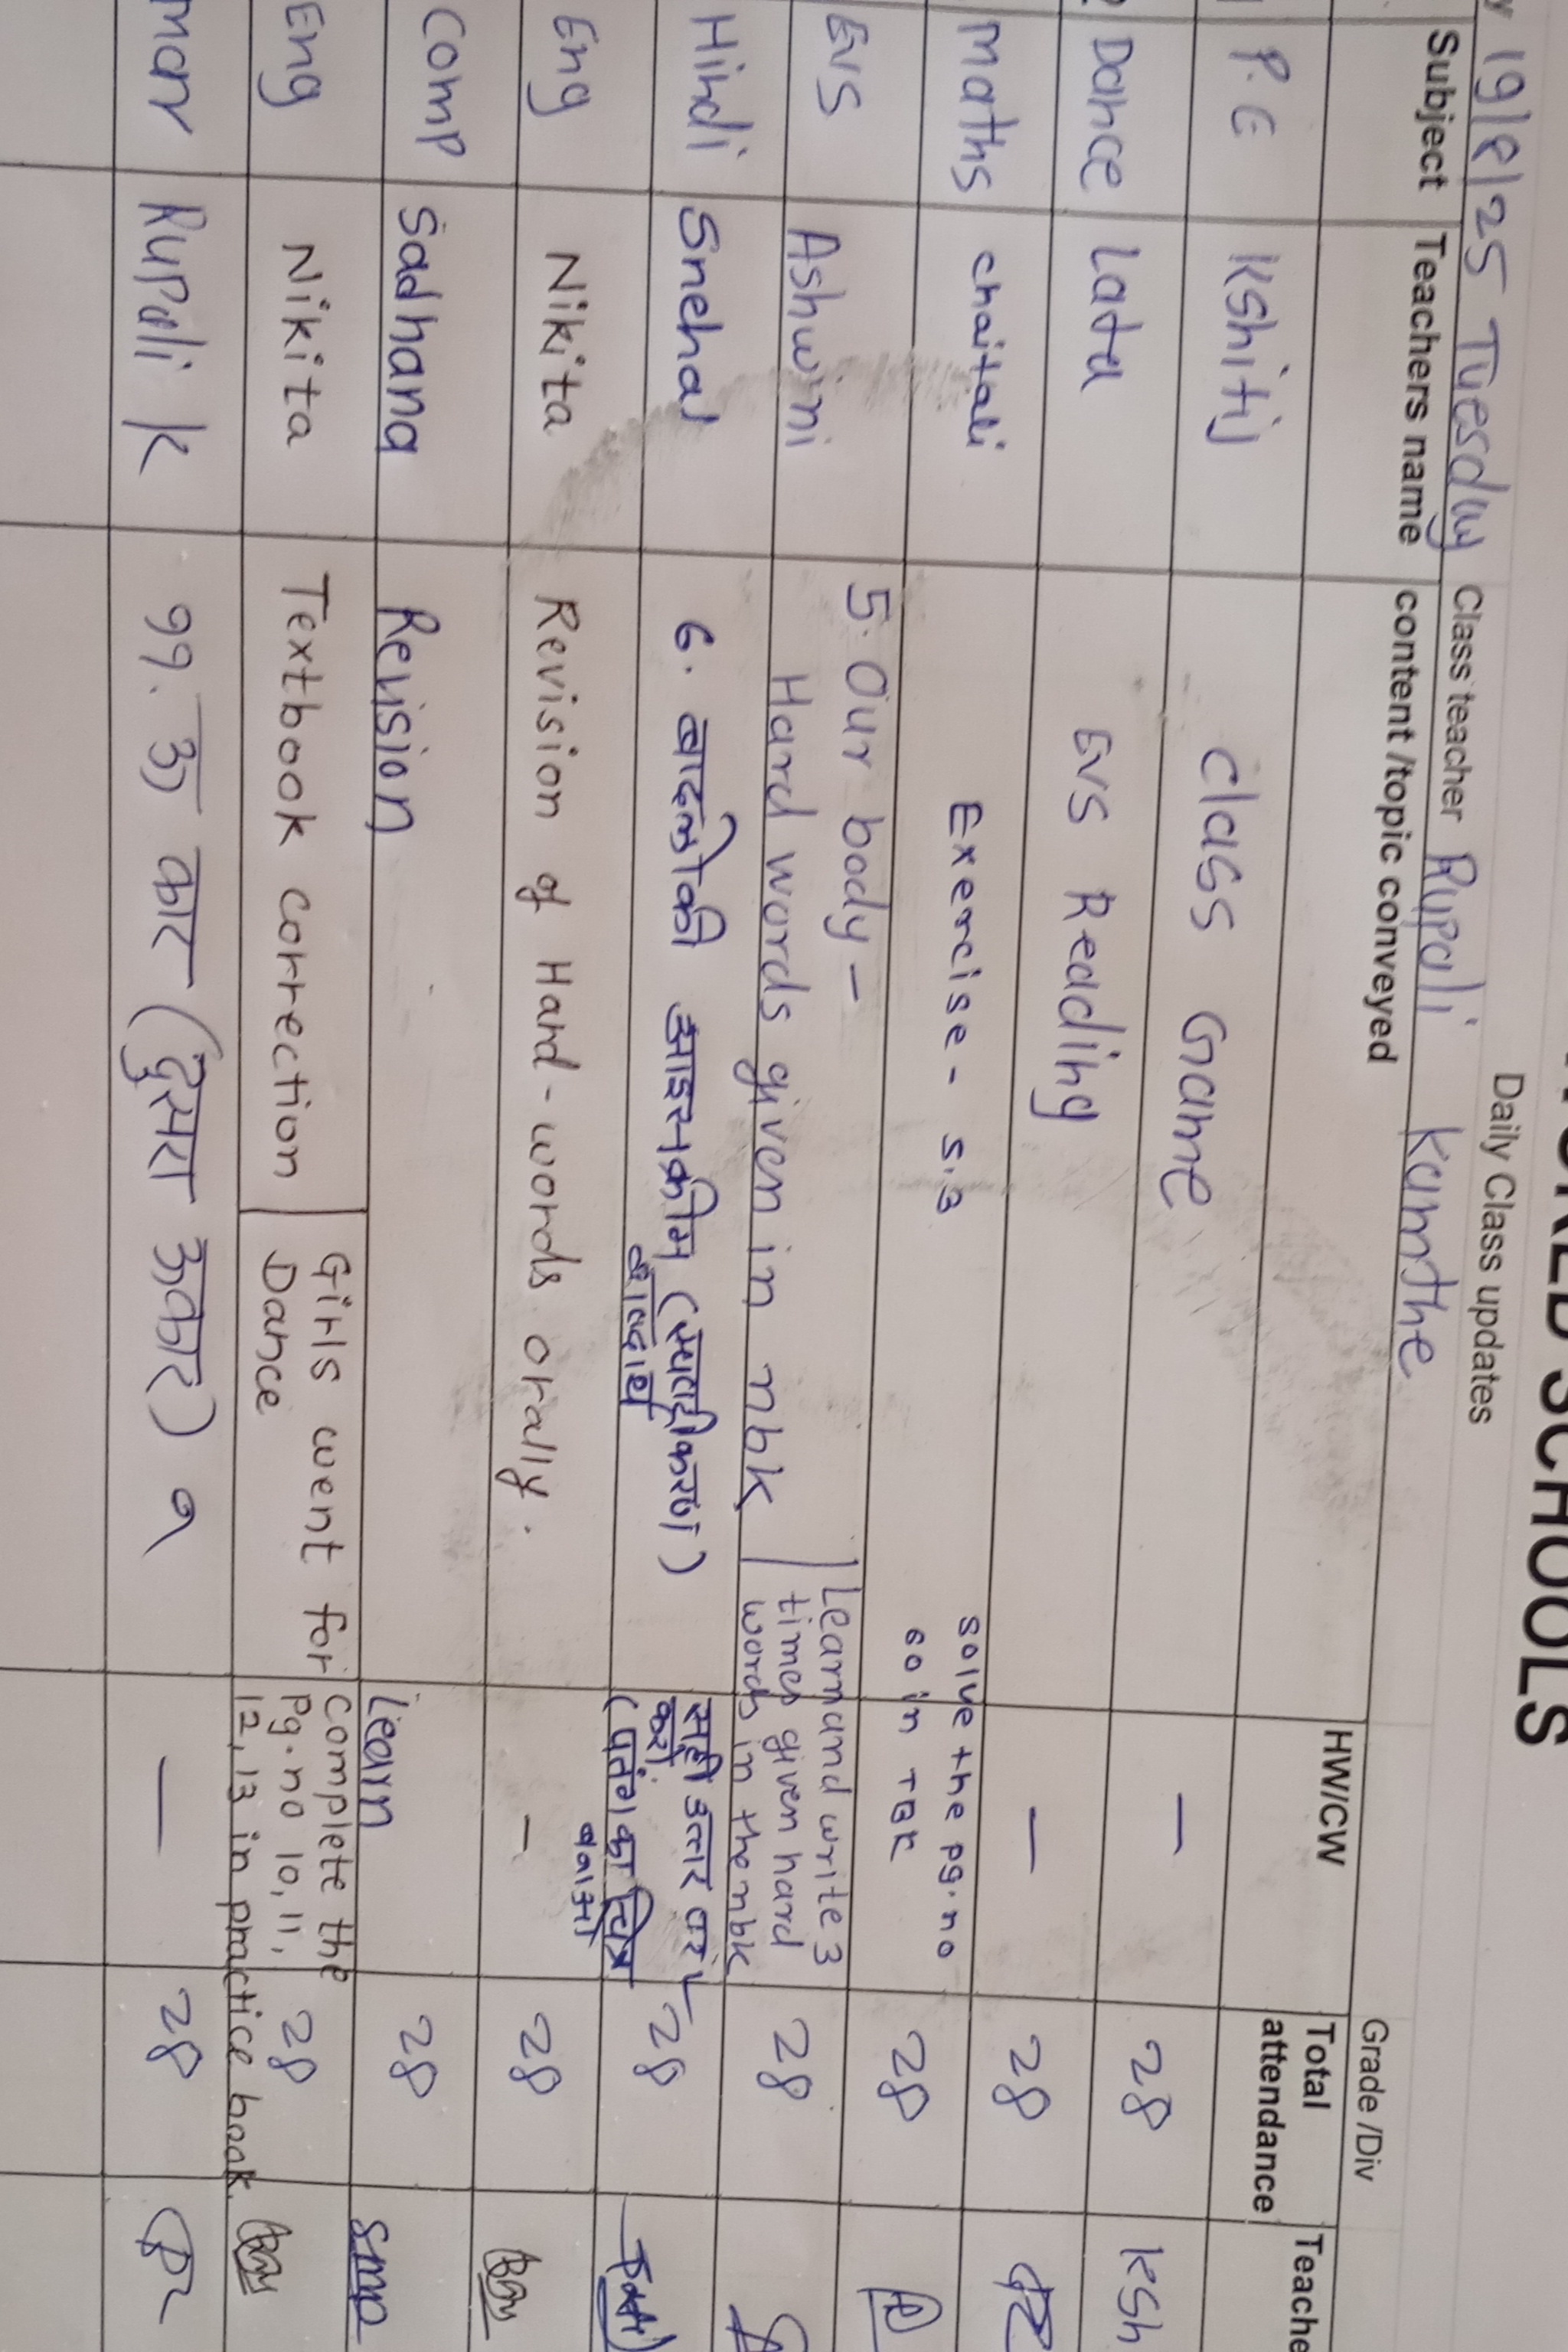 SCHOOLS
Daily Class updates
19/8/25 Tuesday Class teacher Rupali Kamthe Grade /Div
Subject Teachers name content /topic conveyed HW/CW Total attendance
P.E Kshitij class Game — 28 Ksh
Dance Lata EVS Reading — 28
Maths chaitali Exercise - 5.3 solve the pg.no 60 in TBK 28
EVS Ashwini 5. Our body - Learn and write 3
Hard words given in nbk times given hard words in the nbk 28
Hindi Snehal 6. बादलों की आइसक्रीम (स्पष्टीकरण) सही उत्तर पर ✓ 28
शब्दार्थ करो.
(पतंग का चित्र बनाओ
Eng Nikita Revision of Hard-words orally. - 28
Comp Sadhana Revision Learn 28 smp
Eng Nikita Textbook correction Girls went for Dance Complete the pg.no 10, 11, 12, 13 in practice book. 28
mar Rupali K ११. ऊ कार (दुसरा ऊकार) १ — 28